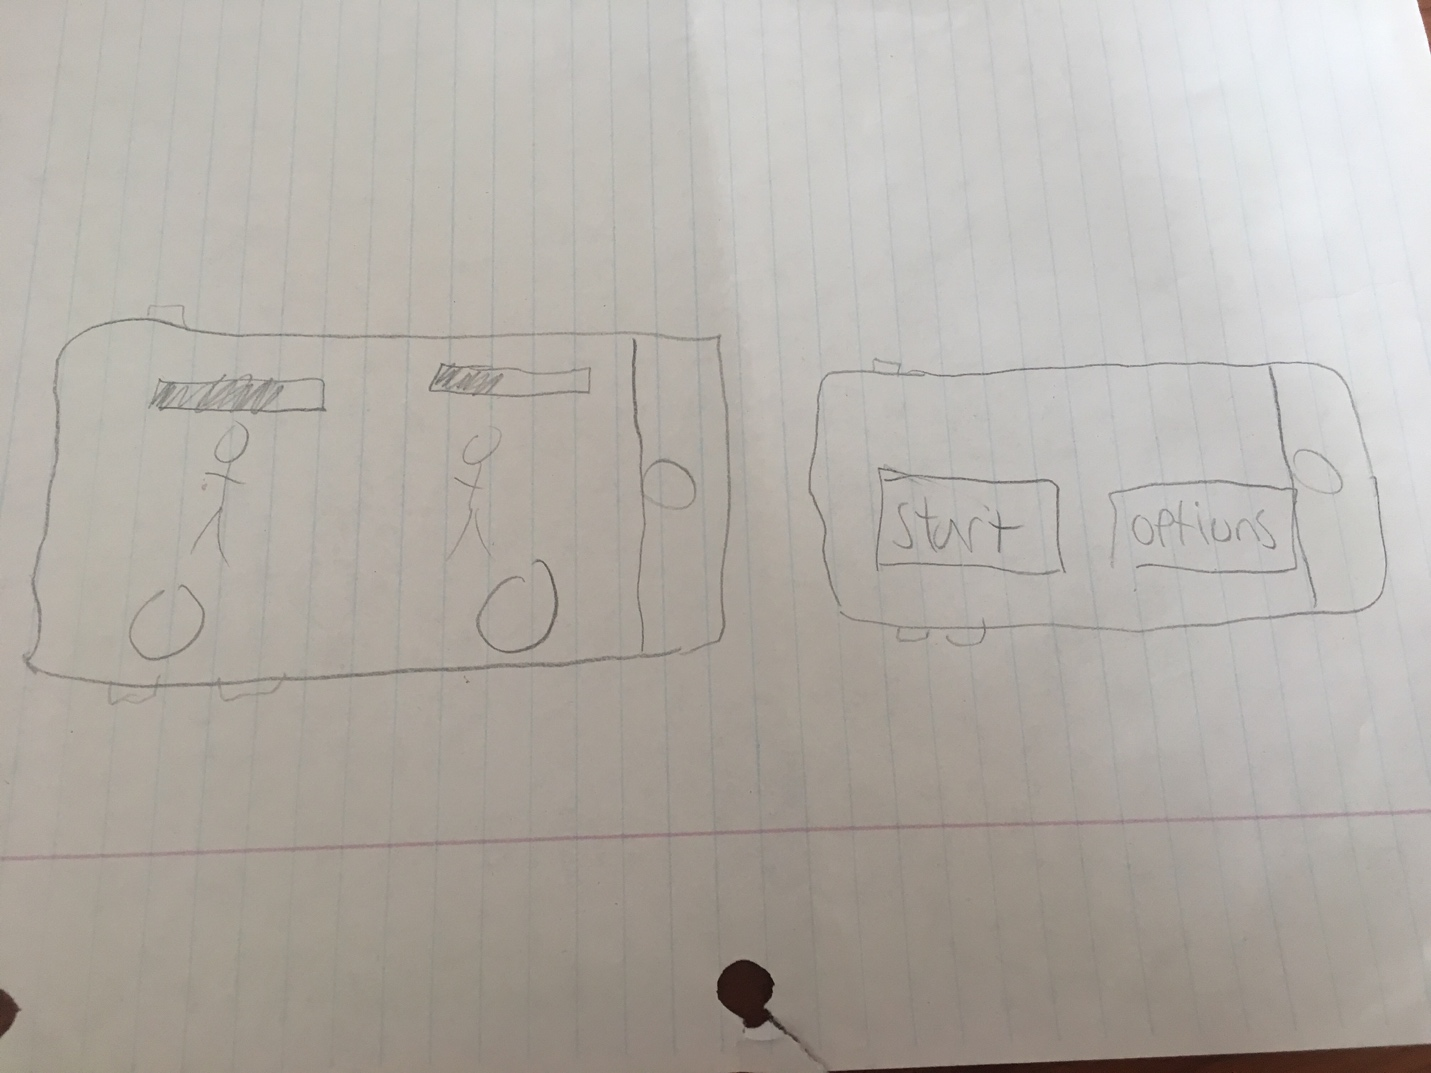 start
options